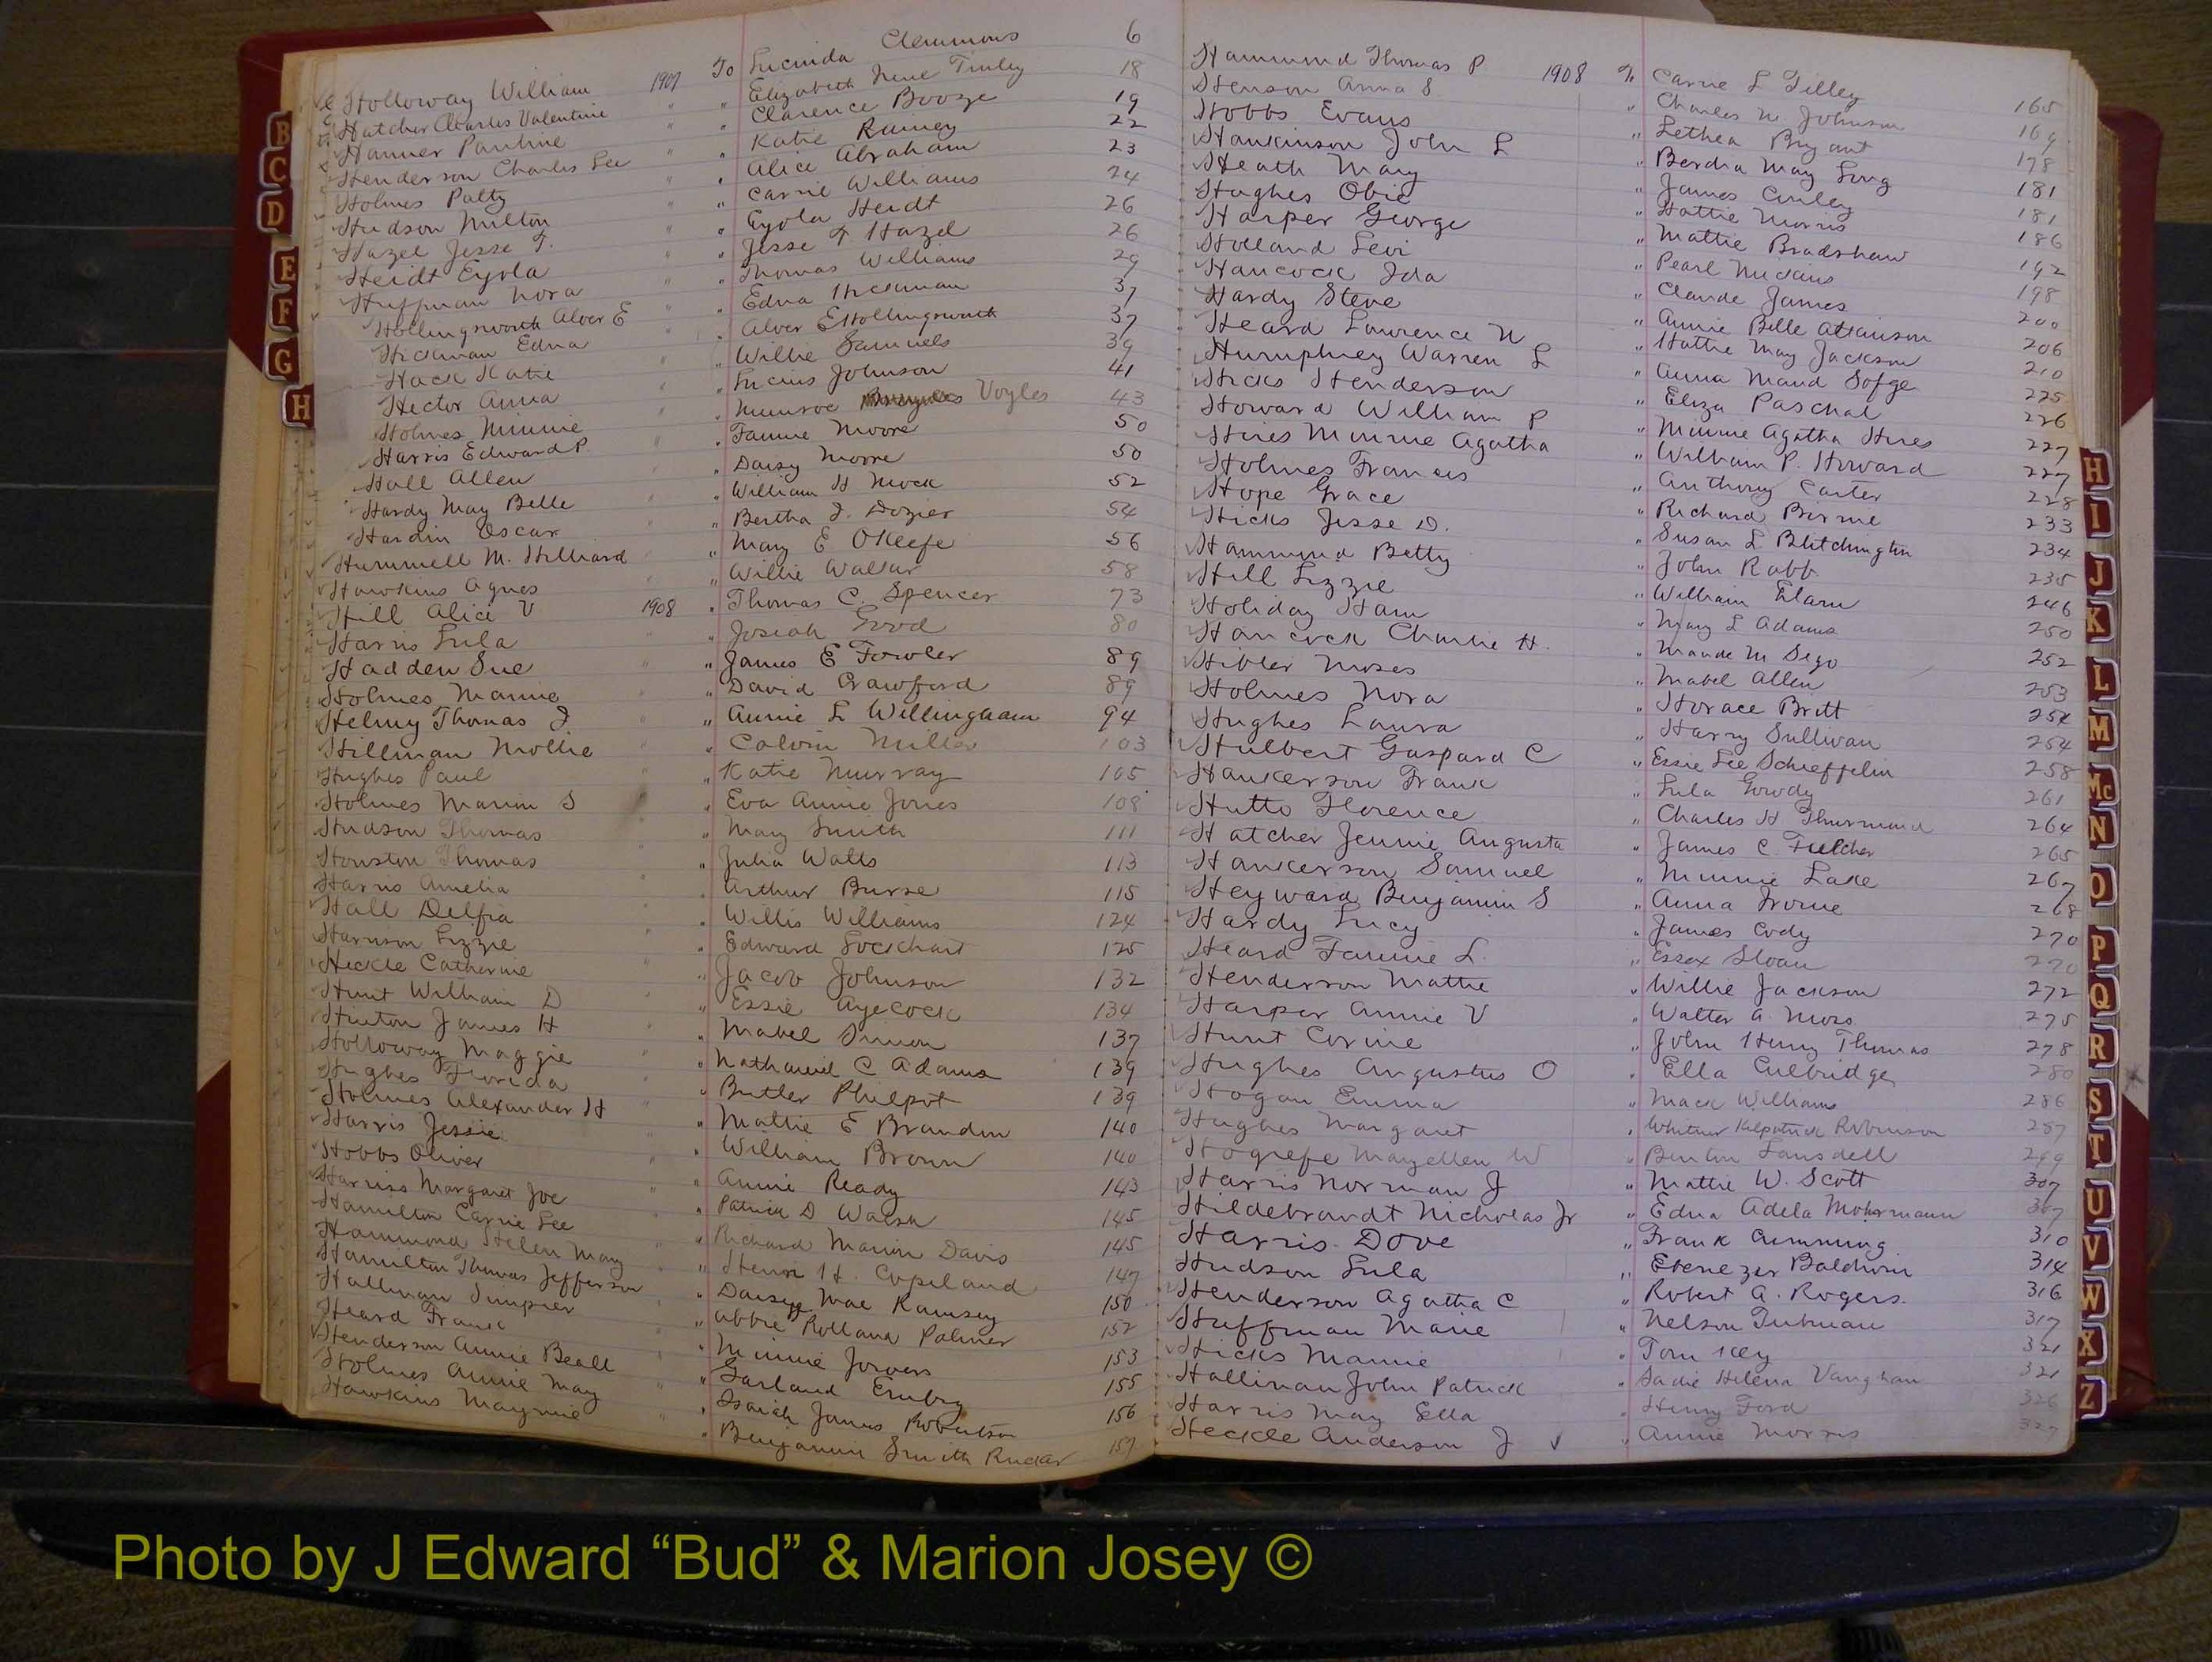 Holloway William 1907 To Lucinda Clemmons 6
Hatcher Charles Valentine " " Elizabeth Irene Tinley 18
Hanner Pauline " " Clarence Booze 19
Henderson Charles Lee " " Katie Rainey 22
Holmes Patty " " Alice Abraham 23
Hudson Milton " " Carrie Williams 24
Hazel Jesse T. " " Eyola Heidt 26
Heidt Eyola " " Jesse T Hazel 26
Huffman Nora " " Thomas Williams 29
Hollingsworth Alver E " " Edna Hickman 37
Hickman Edna " " Alver E Hollingsworth 37
Hack Katie " " Willie Samuels 39
Hector Anna " " Lucius Johnson 41
Holmes Minnie " " Munroe Voyles 43
Harris Edward P. " " Fannie Moore 50
Hall Allen " Daisy Moore 50
Hardy May Belle " " William H Mock 52
Hardin Oscar " " Bertha I. Dozier 54
Hummell M. Hilliard " " Mary E OKeefe 56
Hawkins Agnes " " Willie Walker 58
Hill Alice V 1908 " Thomas C. Spencer 73
Harris Lula " " Josiah Good 80
Hadden Sue " " James E Fowler 89
Holmes Mamie " " David Crawford 89
Helmy Thomas J " " Annie L Willingham 94
Hillman Mollie " " Calvin Miller 103
Hughes Paul " " Katie Murray 105
Holmes Marion S " Eva Annie Jones 108
Hudson Thomas " " Mary Smith 111
Houston Thomas " " Julia Walls 113
Harris Amelia " " Arthur Burse 115
Hall Delfia " Willis Williams 124
Harrison Lizzie " " Edward Lockhart 125
Heckle Catherine " " Jacob Johnson 132
Hunt William D " " Essie Aycock 134
Hinton James H " " Mabel Simon 137
Holloway Maggie " " Nathaniel C Adams 139
Hughes Florida " " Butler Philpot 139
Holmes Alexander H " " Mattie E Brandon 140
Harris Jessie " " William Brown 140
Hobbs Oliver " " Annie Ready 143
Harriss Margaret Joe " " Patrick D Walsh 145
Hamilton Carrie Lee " " Richard Marion Davis 145
Hammond Helen May " " Henri H. Copeland 147
Hamilton Thomas Jefferson " " Daisy Mae Ramsey 150
Hallman Simpier " " Abbie Rolland Palmer 152
Heard Frank " " Minnie Jowers 153
Henderson Annie Beall " " Garland Embry 155
Holmes Annie May " " Isaiah James Robertson 156
Hawkins Maymie " " Benjamin Smith Rucker 157
Hammond Thomas P. 1908 To Carrie L Tilley 165
Henson Anna S. " Charles W. Johnson 169
Hobbs Evans " Lethea Bryant 178
Hankinson John L " Bertha May Long 181
Heath Mary " James Curley 181
Hughes Obie " Hattie Morris 186
Harper George " Mattie Bradshaw 192
Holland Levi " Pearl 198
Hancock Ida " Claude James 200
Hardy Steve " Annie Belle Atkinson 206
Heard Lawrence W " Hattie May Jackson 210
Humphrey Warren L " Anna Maud Sofge 225
Hicks Henderson " Eliza Paschal 226
Howard William P " Minnie Agatha Hires 227
Hires Minnie Agatha " William P. Howard 227
Holmes Francis " Anthony Carter 228
Hope Grace " Richard Birnie 233
Hicks Jesse D. " Susan L Blitchington 234
Hammond Betty " John Rabb 235
Hill Lizzie " William Elam 246
Holiday Ham " Mary L Adams 250
Hancock Charlie H. " Maude M Sego 252
Hibler Moses " Mabel Allen 253
Holmes Nora " Horace Britt 254
Hughes Laura " Harry Sullivan 254
Hulbert Gaspard C " Essie Lee Schieffelin 258
Hankerson Frank " Lula Gowdy 261
Hutto Florence " Charles H Thurmond 264
Hatcher Jennie Augusta " James C. Fulcher 265
Hankerson Samuel " Minnie Lake 267
Heyward Benjamin S " Anna Irvine 268
Hardy Lucy " James Cody 270
Heard Fannie L. " Essex Sloan 270
Henderson Mattie " Willie Jackson 272
Harper Annie V " Walter A. Moss 275
Hunt Corine " John Henry Thomas 278
Hughes Augustus O " Ella Culbridge 280
Hogan Emma " Mack Williams 286
Hughes Margaret " Whitner Kilpatrick Robinson 287
Hogrefe Mayellen W " Benton Lansdell 299
Harris Norman J " Mattie W. Scott 307
Hildebrandt Nicholas Jr " Edna Adela Mohrmann 307
Harris Dove " Frank Cumming 310
Hudson Lula " Ebenezer Baldwin 314
Henderson Agatha C " Robert A. Rogers. 316
Huffman Marie " Nelson Tutman 317
Hicks Mamie " Tom Key 321
Hallinan John Patrick " Sadie Helena Vaughan 321
Harris May Ella " Henry Ford 326
Heckle Anderson J " Annie Morris 327
B
C
D
E
F
G
H
H
I
J
K
L
M
Mc
N
O
P
Q
R
S
T
U
V
W
X
Z
Photo by J Edward “Bud” & Marion Josey ©